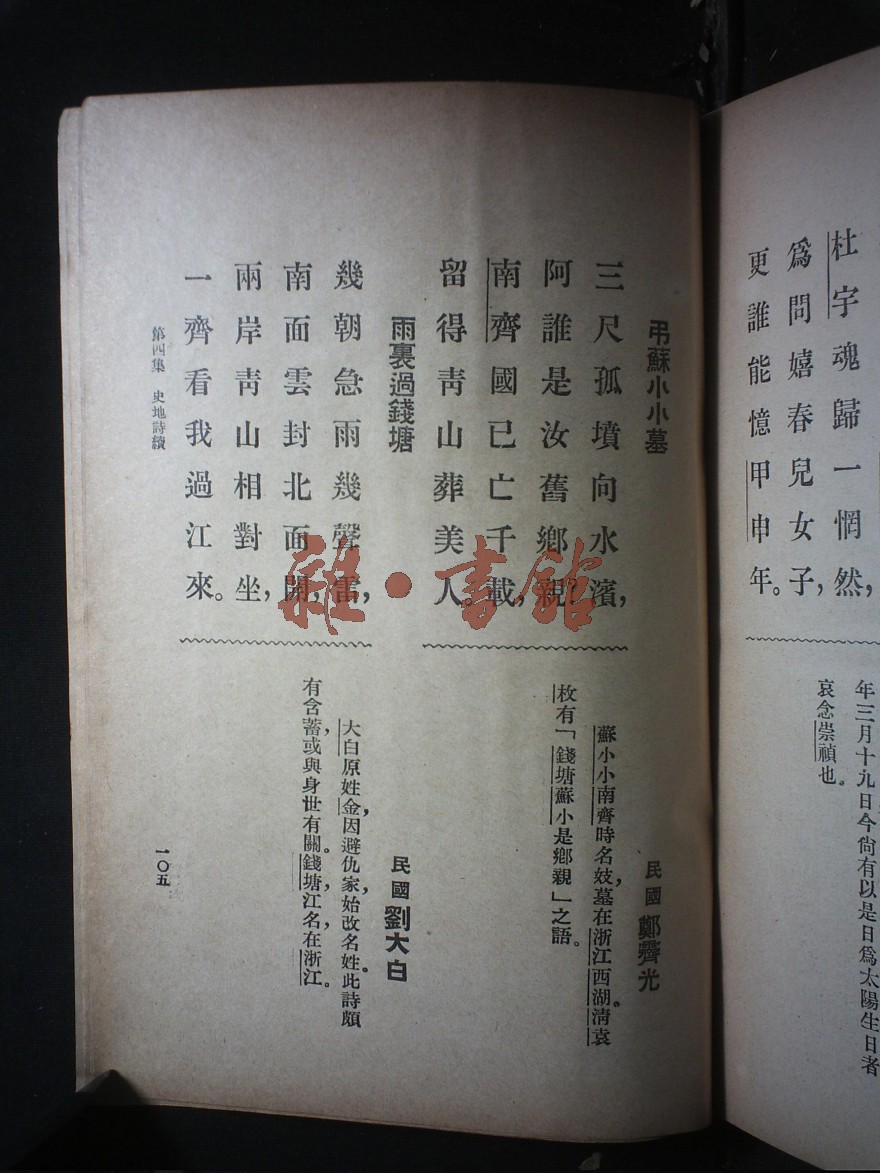 杜宇魂歸一惘然，
爲問嬉春兒女子，
更誰能憶甲申年。
年三月十九日今尙有以是日爲太陽生日者
哀念崇禎也。
弔蘇小小墓
民國 鄭霽光
三尺孤墳向水濱，
阿誰是汝舊鄉親？
南齊國已亡千載，
留得靑山葬美人。
蘇小小南齊時名妓，墓在浙江西湖。淸袁
枚有「錢塘蘇小是鄉親」之語。
雨裏過錢塘
民國 劉大白
幾朝急雨幾聲雷，
南面雲封北面開，
兩岸靑山相對坐，
一齊看我過江來。
大白原姓金，因避仇家，始改名姓。此詩頗
有含蓄，或與身世有關。錢塘，江名，在浙江。
第四集 史地詩續
一〇五
雜·書館